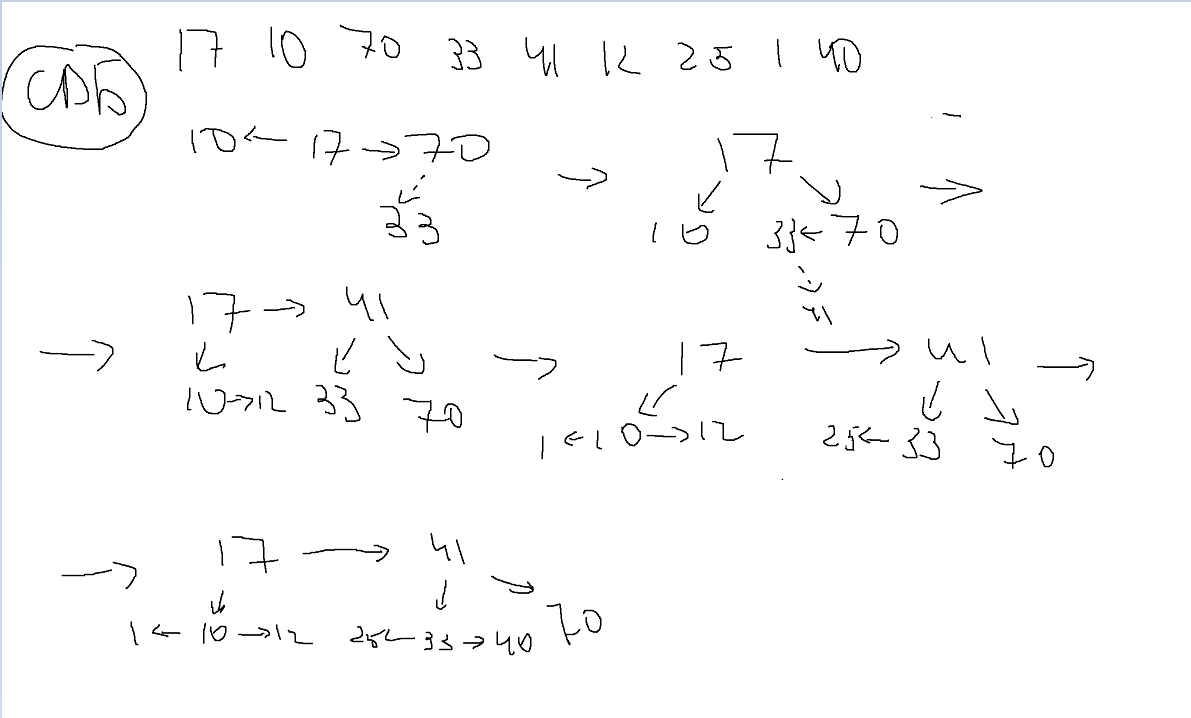 СДБ 17 10 70 33 41 12 25 1 40
10 ← 17 → 70 → 17 →
33 10 33 ← 70
41
→ 17 → 41 → 17 → 41 →
10 → 12 33 70 1 ← 10 → 12 25 ← 33 70
→ 17 → 41
1 ← 10 → 12 25 ← 33 → 40 70